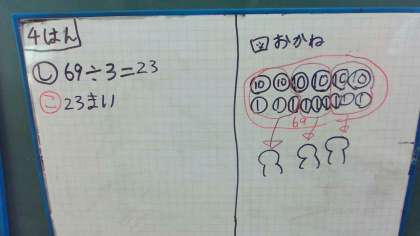 4はん
し 69÷3=23
こ 23まい
図 おかね
10 10 10 10 10 10
1 1 1 1 1 1 1 1 1
69